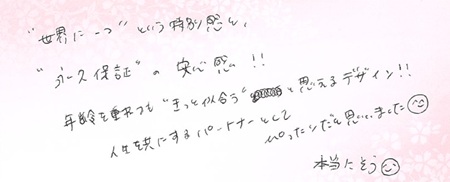 "世界に一つ" という特別感と、
"永久保証" の安心感!!
年齢を重ねても "きっと似合う" と思えるデザイン!!
人生を共にするパートナーとして
ぴったりだと思いました☺
本当にそう☺